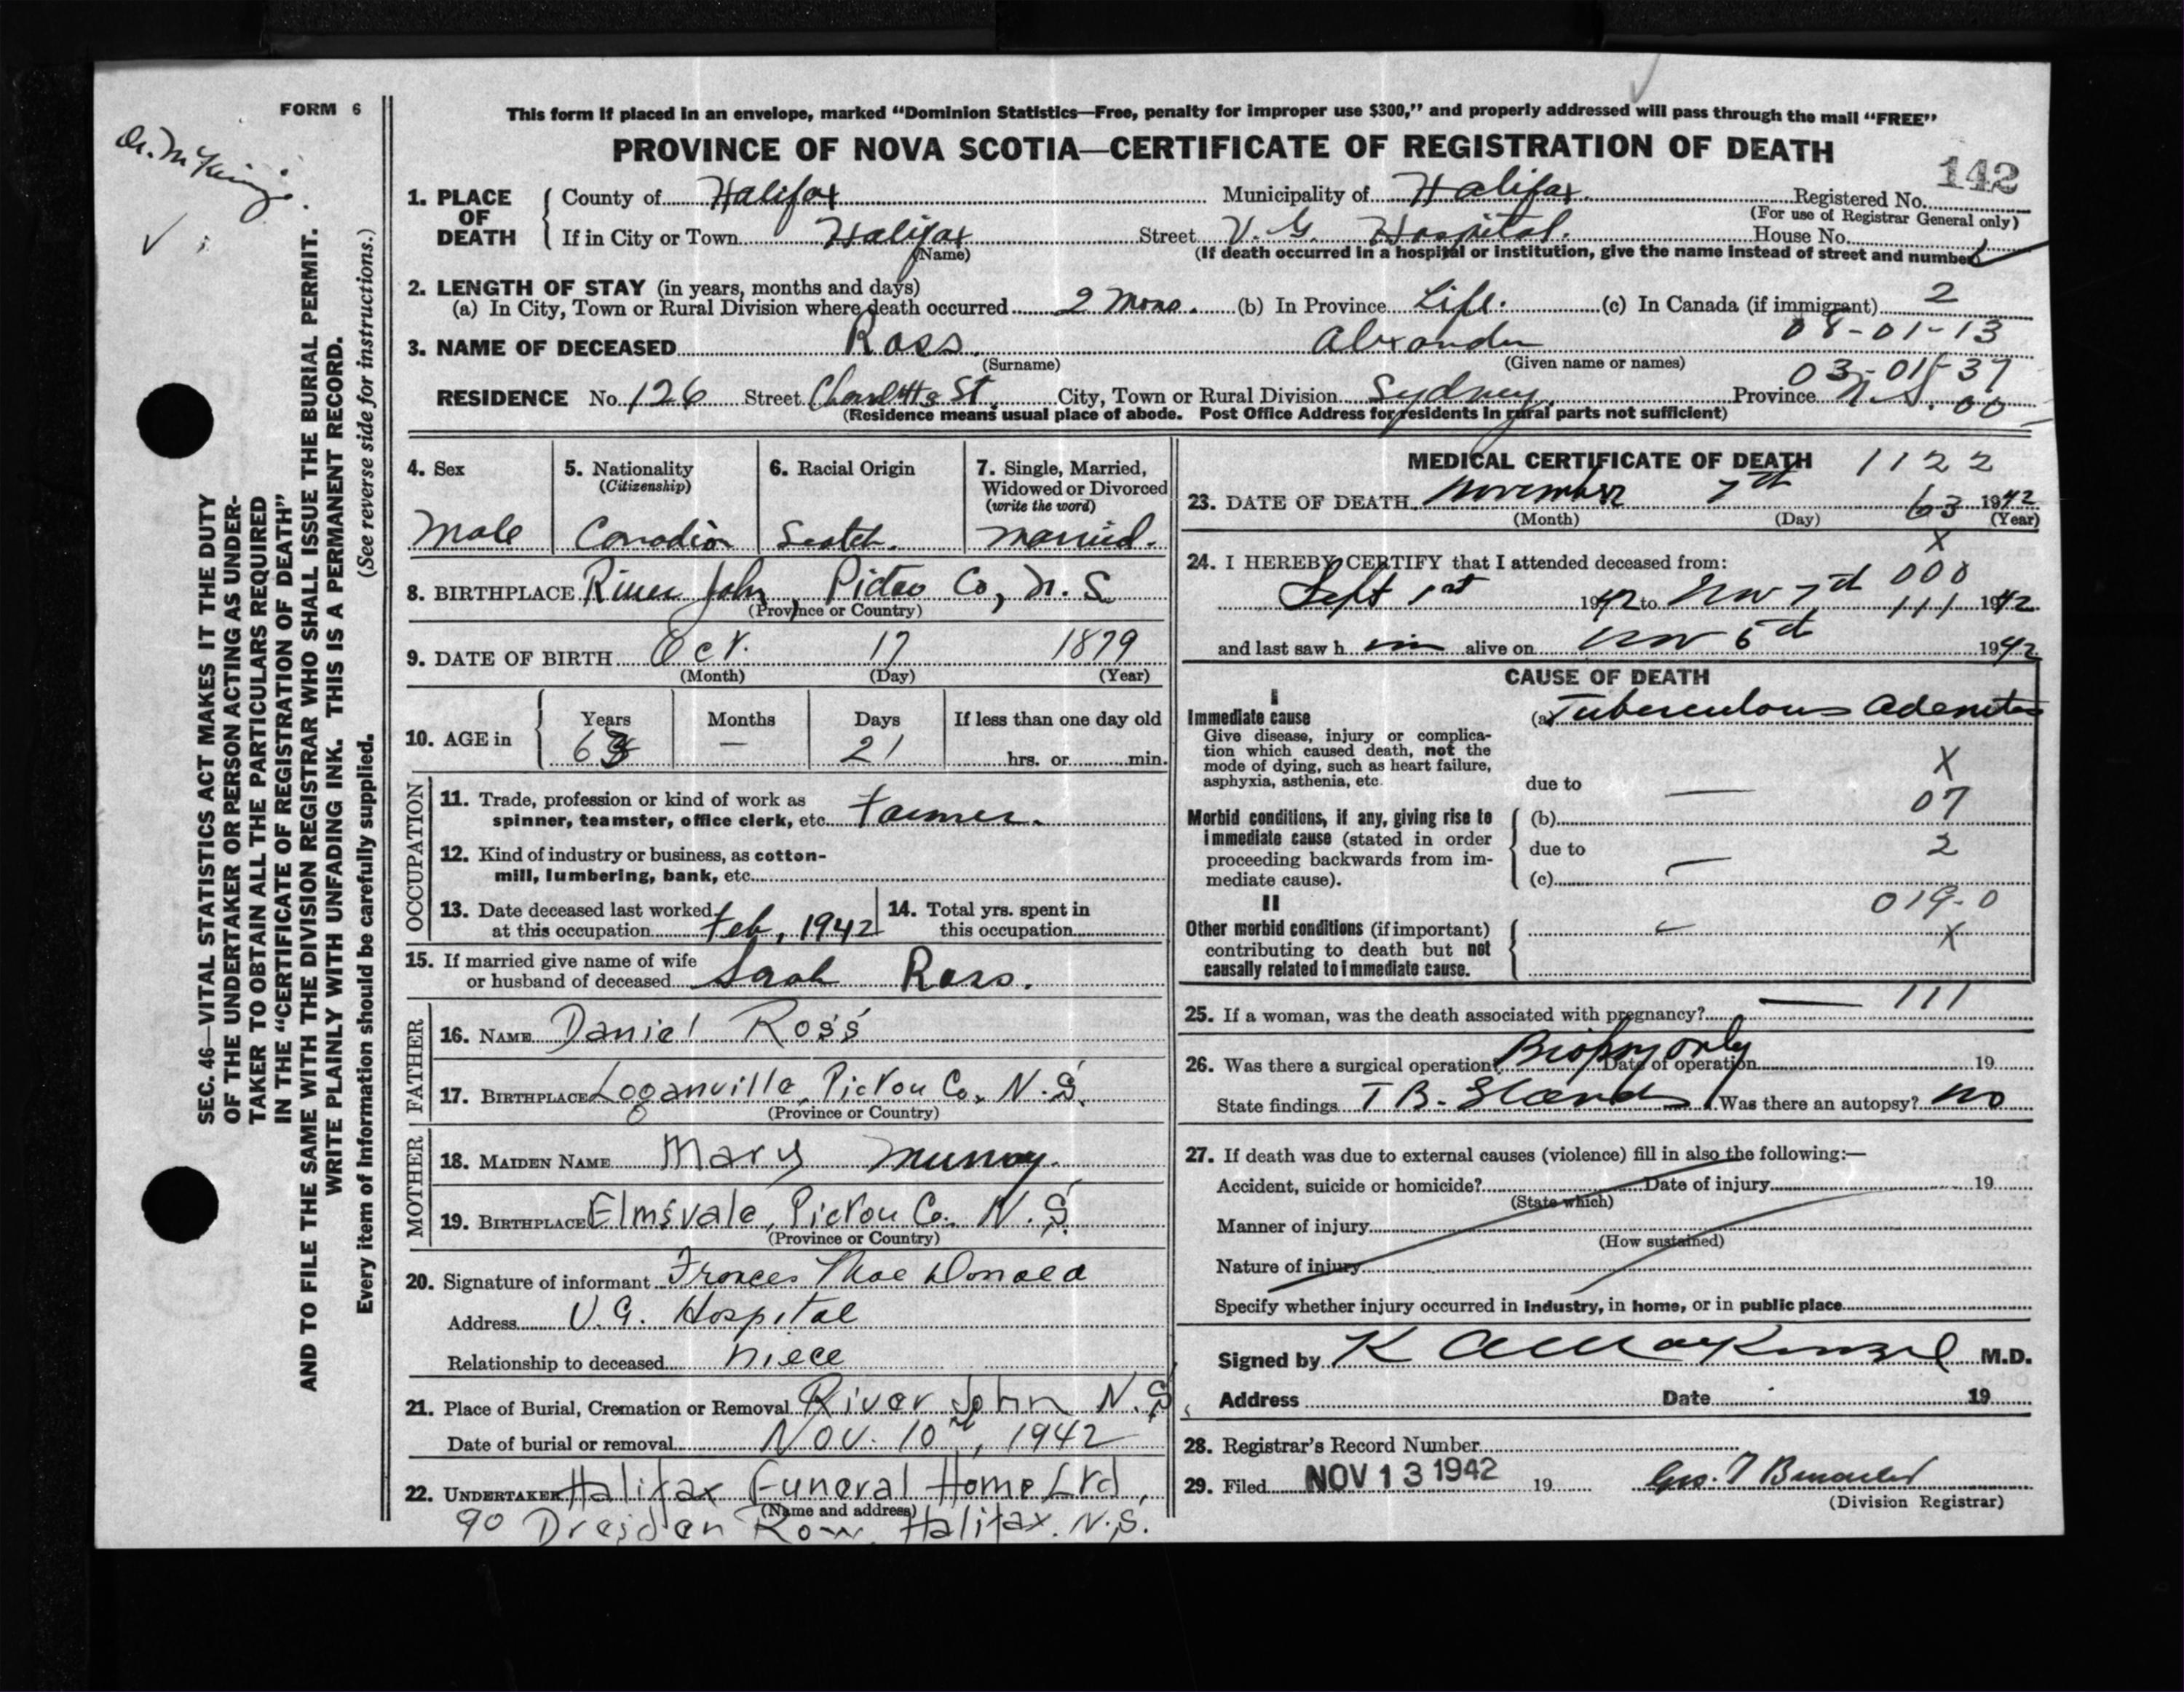 FORM 6
This form if placed in an envelope, marked “Dominion Statistics—Free, penalty for improper use $300,” and properly addressed will pass through the mail “FREE”
PROVINCE OF NOVA SCOTIA—CERTIFICATE OF REGISTRATION OF DEATH
142
1. PLACE OF DEATH
County of Halifax Municipality of Halifax Registered No.
(For use of Registrar General only)
If in City or Town Halifax Street V. G. Hospital. House No.
(Name) (If death occurred in a hospital or institution, give the name instead of street and number)
2. LENGTH OF STAY (in years, months and days)
(a) In City, Town or Rural Division where death occurred 2 Mons. (b) In Province Life. (c) In Canada (if immigrant) 2
08-01-13
3. NAME OF DECEASED Ross Alexander
(Surname) (Given name or names)
03-01-37
RESIDENCE No. 126 Street Charlotte St. City, Town or Rural Division Sydney. Province N.S. 00
(Residence means usual place of abode. Post Office Address for residents in rural parts not sufficient)
4. Sex Male
5. Nationality (Citizenship) Canadian
6. Racial Origin Scotch.
7. Single, Married, Widowed or Divorced (write the word) Married.
8. BIRTHPLACE River John, Pictou Co, N.S
(Province or Country)
9. DATE OF BIRTH Oct. 17 1879
(Month) (Day) (Year)
10. AGE in Years 63 Months — Days 21 If less than one day old hrs. or min.
OCCUPATION
11. Trade, profession or kind of work as spinner, teamster, office clerk, etc. Farmer.
12. Kind of industry or business, as cotton-mill, lumbering, bank, etc.
13. Date deceased last worked at this occupation Feb, 1942
14. Total yrs. spent in this occupation
15. If married give name of wife or husband of deceased Sarah Ross.
FATHER
16. NAME Daniel Ross
17. BIRTHPLACE Loganville, Pictou Co. N.S.
(Province or Country)
MOTHER
18. MAIDEN NAME Mary Murray.
19. BIRTHPLACE Elmsvale, Pictou Co. N.S
(Province or Country)
20. Signature of informant Frances Mae Donald
Address V.G. Hospital
Relationship to deceased niece
21. Place of Burial, Cremation or Removal River John N.S
Date of burial or removal Nov. 10th, 1942
22. UNDERTAKER Halifax Funeral Home Ltd,
(Name and address)
90 Dresden Row, Halifax. N.S.
MEDICAL CERTIFICATE OF DEATH 1122
23. DATE OF DEATH November 7th 63 1942
(Month) (Day) (Year)
X
24. I HEREBY CERTIFY that I attended deceased from:
000
Sept 1st 1942 to Nov 7th 111 1942
and last saw h im alive on Nov 6th 1942
CAUSE OF DEATH
I
Immediate cause
Give disease, injury or complication which caused death, not the mode of dying, such as heart failure, asphyxia, asthenia, etc.
(a) Tuberculous Adenitis
X
due to —
07
Morbid conditions, if any, giving rise to immediate cause (stated in order proceeding backwards from immediate cause).
(b)
due to 2
(c)
019-0
II
Other morbid conditions (if important) contributing to death but not causally related to immediate cause.
X
25. If a woman, was the death associated with pregnancy? — 111
26. Was there a surgical operation? Biopsy only Date of operation 19
State findings T B. Glands Was there an autopsy? No
27. If death was due to external causes (violence) fill in also the following:—
Accident, suicide or homicide? Date of injury 19
(State which)
Manner of injury
(How sustained)
Nature of injury
Specify whether injury occurred in industry, in home, or in public place
Signed by K A MacKenzie M.D.
Address Date 19
28. Registrar's Record Number
29. Filed NOV 13 1942 19
(Division Registrar)
SEC. 46—VITAL STATISTICS ACT MAKES IT THE DUTY
OF THE UNDERTAKER OR PERSON ACTING AS UNDER-
TAKER TO OBTAIN ALL THE PARTICULARS REQUIRED
IN THE “CERTIFICATE OF REGISTRATION OF DEATH”
AND TO FILE THE SAME WITH THE DIVISION REGISTRAR WHO SHALL ISSUE THE BURIAL PERMIT.
WRITE PLAINLY WITH UNFADING INK. THIS IS A PERMANENT RECORD.
Every item of information should be carefully supplied. (See reverse side for instructions.)